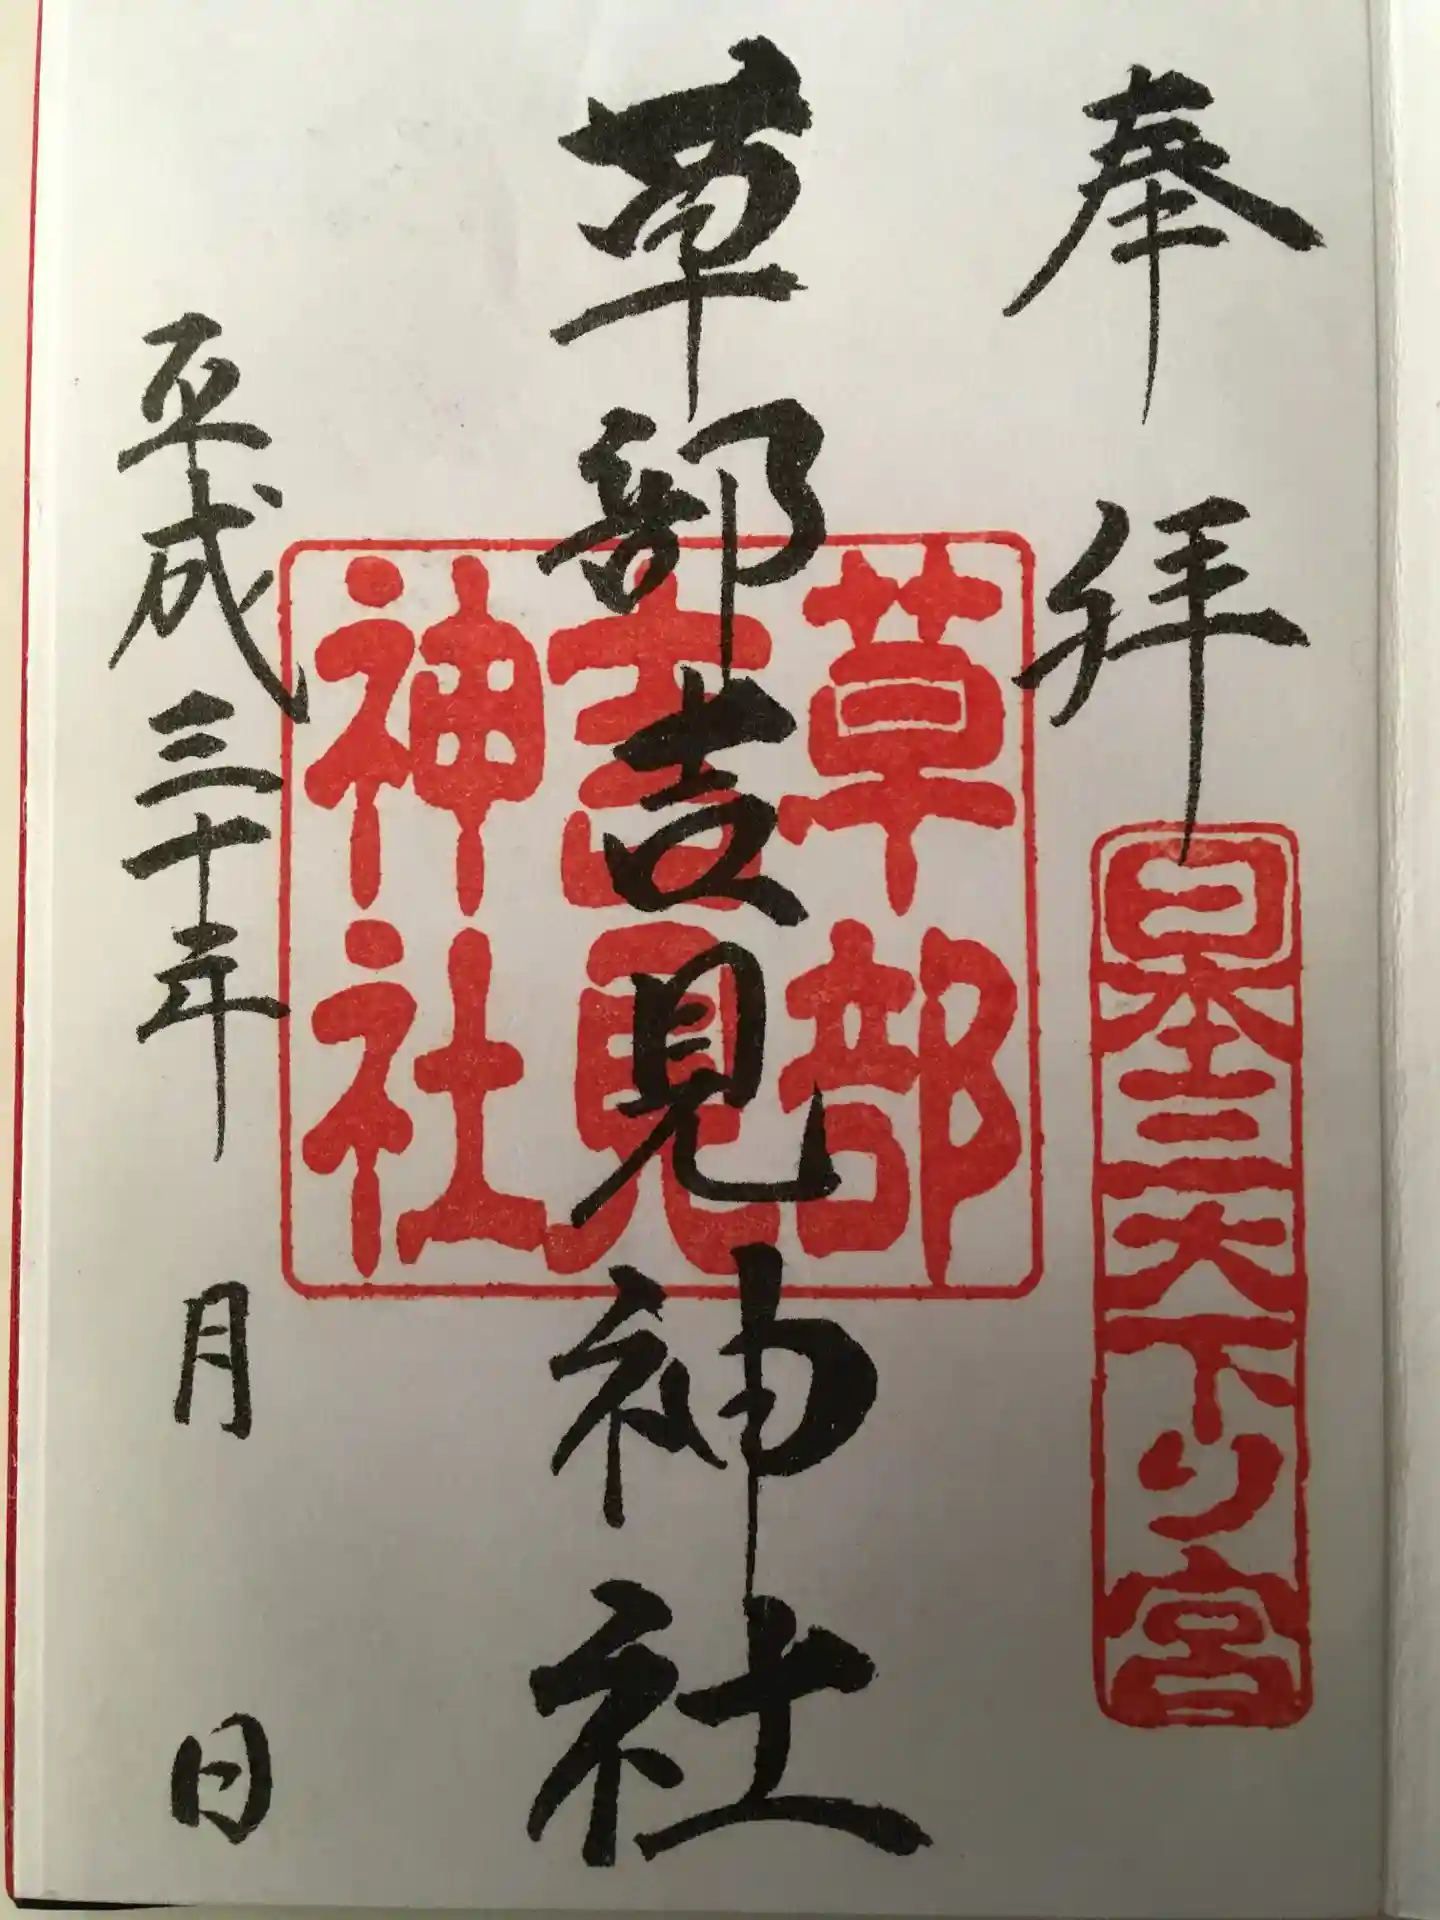 奉拝
日本三大下り宮
草部吉見神社
草部
吉見
神社
平成三十年 月 日